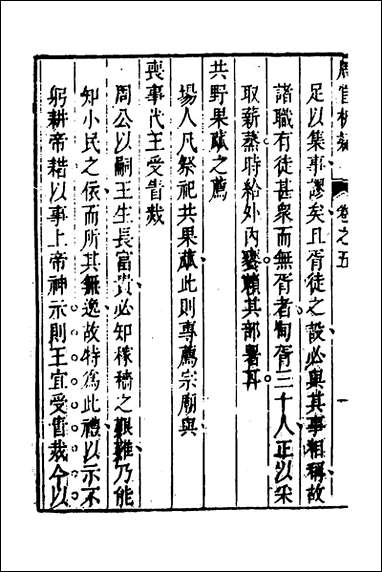 周官析疑 卷之五 一
足以集事謬矣且胥徒之設必與其事相稱故
諸職有徒甚衆而無胥者甸胥三十人正以采
取薪蒸時給外內饔賴其部署耳
共野果蓏之薦
場人凡祭祀共果蓏此則專薦宗廟與
喪事代王受眚烖
周公以嗣王生長富貴必知稼穡之艱難乃能
知小民之依而所其無逸故特爲此禮以示不
躬耕帝耤以事上帝神示則王宜受眚烖今以